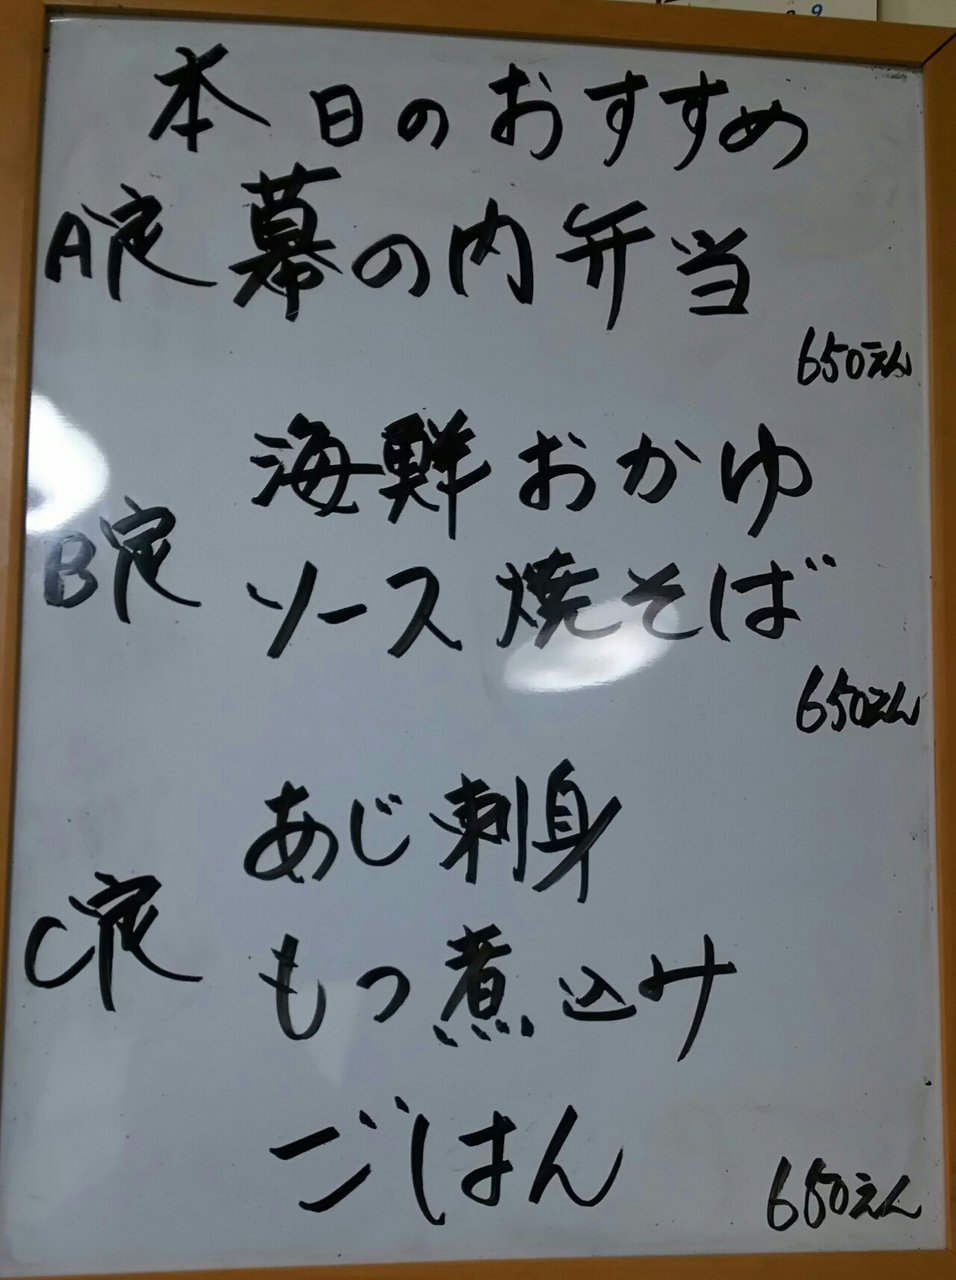 本日のおすすめ
A定 幕の内弁当
650えん
海鮮おかゆ
B定 ソース焼そば
650えん
あじ刺身
C定 もつ煮込み
ごはん
650えん